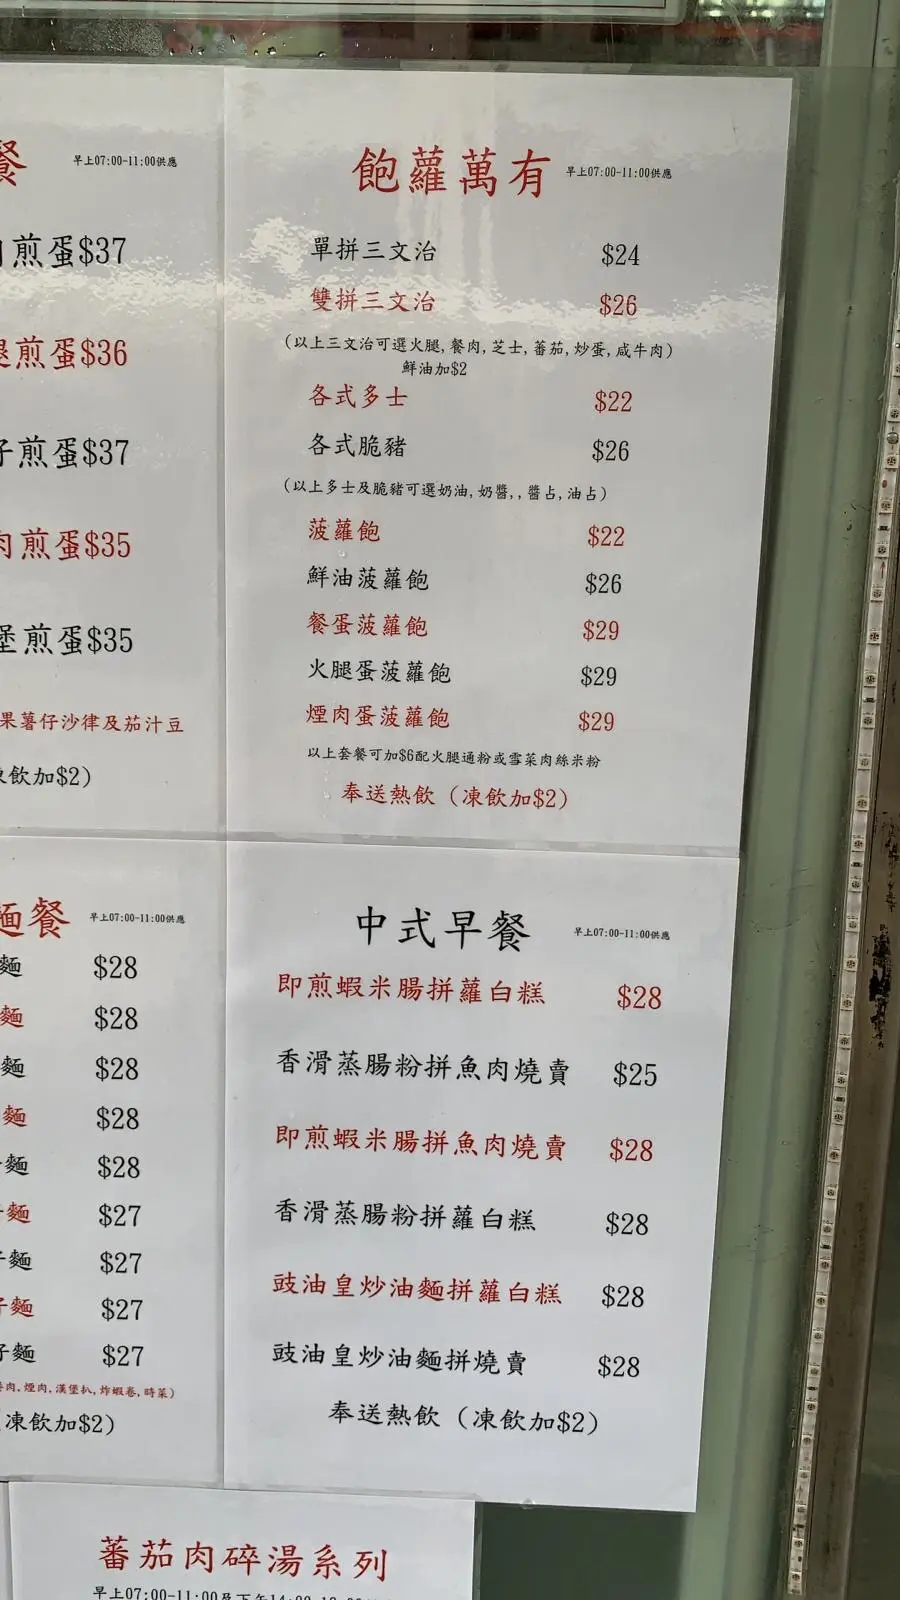 餐 早上07:00-11:00供應
煎蛋$37
煎蛋$36
仔煎蛋$37
肉煎蛋$35
堡煎蛋$35
果薯仔沙律及茄汁豆
凍飲加$2）
飽蘿萬有 早上07:00-11:00供應
單拼三文治 $24
雙拼三文治 $26
（以上三文治可選火腿,餐肉,芝士,蕃茄,炒蛋,咸牛肉）
鮮油加$2
各式多士 $22
各式脆豬 $26
（以上多士及脆豬可選奶油,奶醬,,醬占,油占）
菠蘿飽 $22
鮮油菠蘿飽 $26
餐蛋菠蘿飽 $29
火腿蛋菠蘿飽 $29
煙肉蛋菠蘿飽 $29
以上套餐可加$6配火腿通粉或雪菜肉絲米粉
奉送熱飲（凍飲加$2）
麵餐 早上07:00-11:00供應
麵 $28
麵 $28
麵 $28
麵 $28
麵 $28
麵 $27
麵 $27
麵 $27
麵 $27
肉,煙肉,漢堡扒,炸蝦卷,時菜）
（凍飲加$2）
中式早餐 早上07:00-11:00供應
即煎蝦米腸拼蘿白糕 $28
香滑蒸腸粉拼魚肉燒賣 $25
即煎蝦米腸拼魚肉燒賣 $28
香滑蒸腸粉拼蘿白糕 $28
豉油皇炒油麵拼蘿白糕 $28
豉油皇炒油麵拼燒賣 $28
奉送熱飲（凍飲加$2）
蕃茄肉碎湯系列
早上07:00-11:00及下午14:00